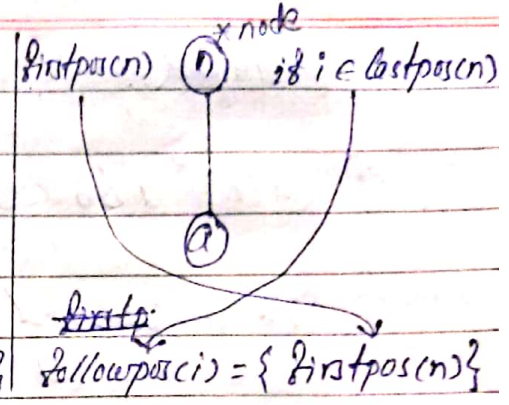 * node
firstpos(n) n if i ∈ lastpos(n)
a
firstp.
followpos(i) = { firstpos(n)}